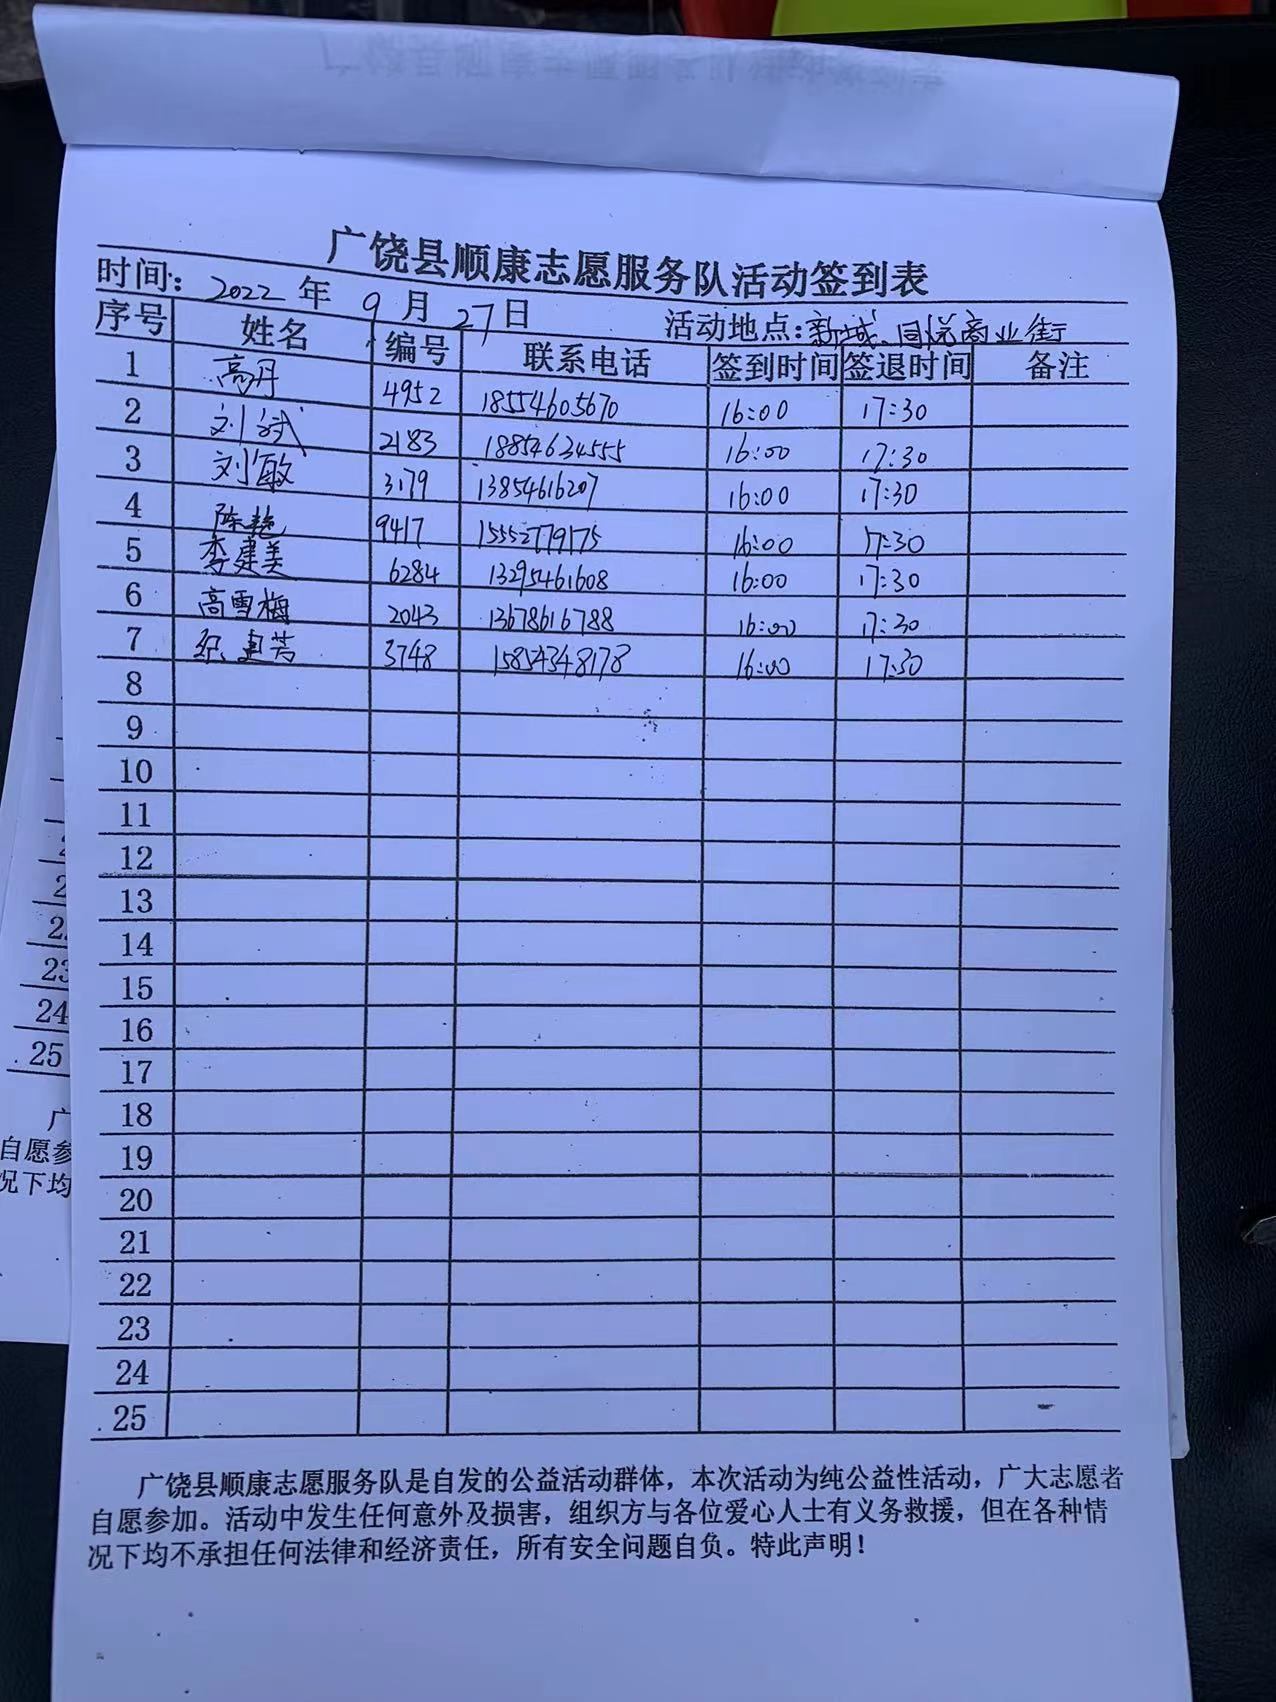 广饶县顺康志愿服务队活动签到表
时间: 2022 年 9 月 27 日 活动地点:新城、同悦商业街
序号 姓名 编号 联系电话 签到时间 签退时间 备注
1 高丹 4952 18554605670 16:00 17:30
2 刘 2183 18854634555 16:00 17:30
3 刘敏 3179 13854616207 16:00 17:30
4 陈艳 9417 15552779175 16:00 17:30
5 李建美 6284 13295461608 16:00 17:30
6 高雪梅 2043 13678616788 16:00 17:30
7 纪建芳 3748 15854348178 16:00 17:30
8
9
10
11
12
13
14
15
16
17
18
19
20
21
22
23
24
25
广饶县顺康志愿服务队是自发的公益活动群体，本次活动为纯公益性活动，广大志愿者
自愿参加。活动中发生任何意外及损害，组织方与各位爱心人士有义务救援，但在各种情
况下均不承担任何法律和经济责任，所有安全问题自负。特此声明！
23
24
25
广
自愿参
况下均